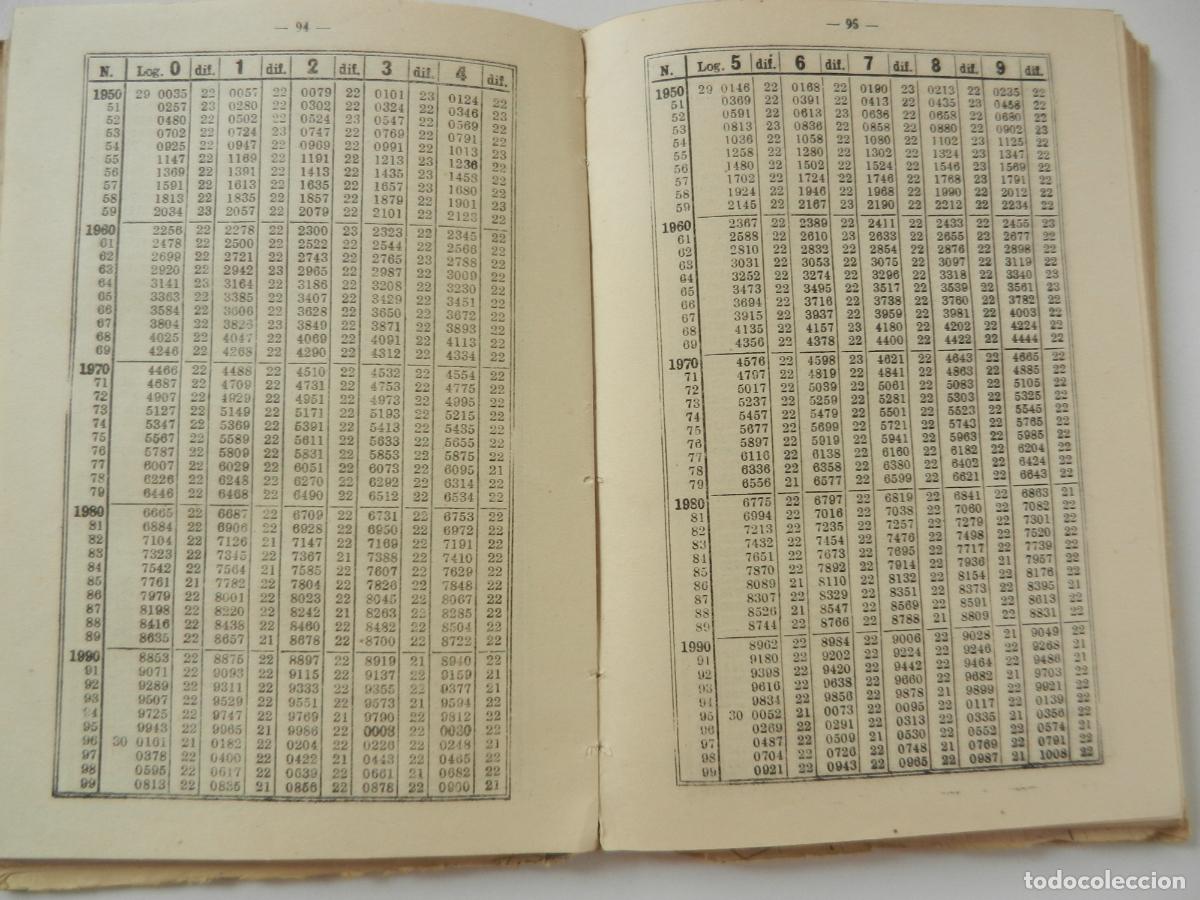 — 94 —
N. Log. 0 dif. 1 dif. 2 dif. 3 dif. 4 dif.
1950 29 0035 22 0057 22 0079 22 0101 23 0124 22
51 0257 23 0280 22 0302 22 0324 22 0346 23
52 0480 22 0502 22 0524 23 0547 22 0569 22
53 0702 22 0724 23 0747 22 0769 22 0791 22
54 0925 22 0947 22 0969 22 0991 22 1013 23
55 1147 22 1169 22 1191 22 1213 23 1236 22
56 1369 22 1391 22 1413 22 1435 23 1458 22
57 1591 22 1613 22 1635 22 1657 23 1680 22
58 1813 22 1835 22 1857 22 1879 22 1901 23
59 2034 23 2057 22 2079 22 2101 22 2123 22
1960 2256 22 2278 22 2300 23 2323 22 2345 22
61 2478 22 2500 22 2522 22 2544 22 2566 22
62 2699 22 2721 22 2743 22 2765 23 2788 22
63 2920 22 2942 23 2965 22 2987 22 3009 22
64 3141 23 3164 22 3186 22 3208 22 3230 22
65 3363 22 3385 22 3407 22 3429 22 3451 22
66 3584 22 3606 22 3628 22 3650 22 3672 22
67 3804 22 3826 23 3849 22 3871 22 3893 22
68 4025 22 4047 22 4069 22 4091 22 4113 22
69 4246 22 4268 22 4290 22 4312 22 4334 22
1970 4466 22 4488 22 4510 22 4532 22 4554 22
71 4687 22 4709 22 4731 22 4753 22 4775 22
72 4907 22 4929 22 4951 22 4973 22 4995 22
73 5127 22 5149 22 5171 22 5193 22 5215 22
74 5347 22 5369 22 5391 22 5413 22 5435 22
75 5567 22 5589 22 5611 22 5633 22 5655 22
76 5787 22 5809 22 5831 22 5853 22 5875 22
77 6007 22 6029 22 6051 22 6073 22 6095 21
78 6226 22 6248 22 6270 22 6292 22 6314 22
79 6446 22 6468 22 6490 22 6512 22 6534 22
1980 6665 22 6687 22 6709 22 6731 22 6753 22
81 6884 22 6906 22 6928 22 6950 22 6972 22
82 7104 22 7126 21 7147 22 7169 22 7191 22
83 7323 22 7345 22 7367 21 7388 22 7410 22
84 7542 22 7564 21 7585 22 7607 22 7629 22
85 7761 21 7782 22 7804 22 7826 22 7848 22
86 7979 22 8001 22 8023 22 8045 22 8067 22
87 8198 22 8220 22 8242 21 8263 22 8285 22
88 8416 22 8438 22 8460 22 8482 22 8504 22
89 8635 22 8657 21 8678 22 8700 22 8722 22
1990 8853 22 8875 22 8897 22 8919 21 8940 22
91 9071 22 9093 22 9115 22 9137 22 9159 21
92 9289 22 9311 22 9333 22 9355 22 9377 21
93 9507 22 9529 22 9551 22 9573 21 9594 22
94 9725 22 9747 22 9769 21 9790 22 9812 22
95 9943 22 9965 21 9986 22 0008 22 0030 22
96 30 0161 21 0182 22 0204 22 0226 22 0248 21
97 0378 22 0400 22 0422 21 0443 22 0465 22
98 0595 22 0617 22 0639 22 0661 21 0682 22
99 0813 22 0835 21 0856 22 0878 22 0900 21
— 95 —
N. Log. 5 dif. 6 dif. 7 dif. 8 dif. 9 dif.
1950 29 0146 22 0168 22 0190 23 0213 22 0235 22
51 0369 22 0391 22 0413 22 0435 23 0458 22
52 0591 22 0613 23 0636 22 0658 22 0680 22
53 0813 23 0836 22 0858 22 0880 22 0902 23
54 1036 22 1058 22 1080 22 1102 23 1125 22
55 1258 22 1280 22 1302 22 1324 23 1347 22
56 1480 22 1502 22 1524 22 1546 23 1569 22
57 1702 22 1724 22 1746 22 1768 23 1791 22
58 1924 22 1946 22 1968 22 1990 22 2012 22
59 2145 22 2167 23 2190 22 2212 22 2234 22
1960 2367 22 2389 22 2411 22 2433 22 2455 23
61 2588 22 2610 23 2633 22 2655 22 2677 22
62 2810 22 2832 22 2854 22 2876 22 2898 22
63 3031 22 3053 22 3075 22 3097 22 3119 22
64 3252 22 3274 22 3296 22 3318 22 3340 23
65 3473 22 3495 22 3517 22 3539 22 3561 23
66 3694 22 3716 22 3738 22 3760 22 3782 22
67 3915 22 3937 22 3959 22 3981 22 4003 22
68 4135 22 4157 23 4180 22 4202 22 4224 22
69 4356 22 4378 22 4400 22 4422 22 4444 22
1970 4576 22 4598 23 4621 22 4643 22 4665 22
71 4797 22 4819 22 4841 22 4863 22 4885 22
72 5017 22 5039 22 5061 22 5083 22 5105 22
73 5237 22 5259 22 5281 22 5303 22 5325 22
74 5457 22 5479 22 5501 22 5523 22 5545 22
75 5677 22 5699 22 5721 22 5743 22 5765 22
76 5897 22 5919 22 5941 22 5963 22 5985 22
77 6116 22 6138 22 6160 22 6182 22 6204 22
78 6336 22 6358 22 6380 22 6402 22 6424 22
79 6556 21 6577 22 6599 22 6621 22 6643 22
1980 6775 22 6797 22 6819 22 6841 22 6863 21
81 6994 22 7016 22 7038 22 7060 22 7082 22
82 7213 22 7235 22 7257 22 7279 22 7301 22
83 7432 22 7454 22 7476 22 7498 22 7520 22
84 7651 22 7673 22 7695 22 7717 22 7739 22
85 7870 22 7892 22 7914 22 7936 21 7957 22
86 8089 21 8110 22 8132 22 8154 22 8176 22
87 8307 22 8329 22 8351 22 8373 22 8395 21
88 8526 21 8547 22 8569 22 8591 22 8613 22
89 8744 22 8766 22 8788 21 8809 22 8831 22
1990 8962 22 8984 22 9006 22 9028 21 9049 22
91 9180 22 9202 22 9224 22 9246 22 9268 21
92 9398 22 9420 22 9442 22 9464 22 9486 21
93 9616 22 9638 22 9660 22 9682 21 9703 22
94 9834 22 9856 22 9878 21 9899 22 9921 22
95 30 0052 21 0073 22 0095 22 0117 22 0139 22
96 0269 22 0291 22 0313 22 0335 21 0356 22
97 0487 22 0509 21 0530 22 0552 22 0574 21
98 0704 22 0726 22 0748 21 0769 22 0791 22
99 0921 22 0943 22 0965 22 0987 21 1008 22
todocoleccion